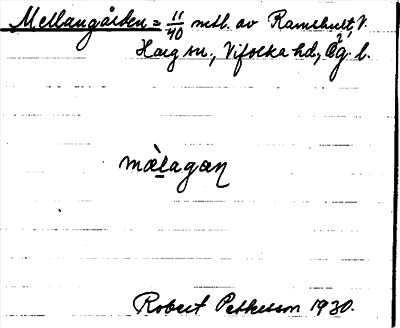 Mellangården = 11/40 mtl. av Ramshult, V.
Harg sn., Vifolka hd, Ög. l.
mæ̀lagaṇ
Robert Pettersson 1930.